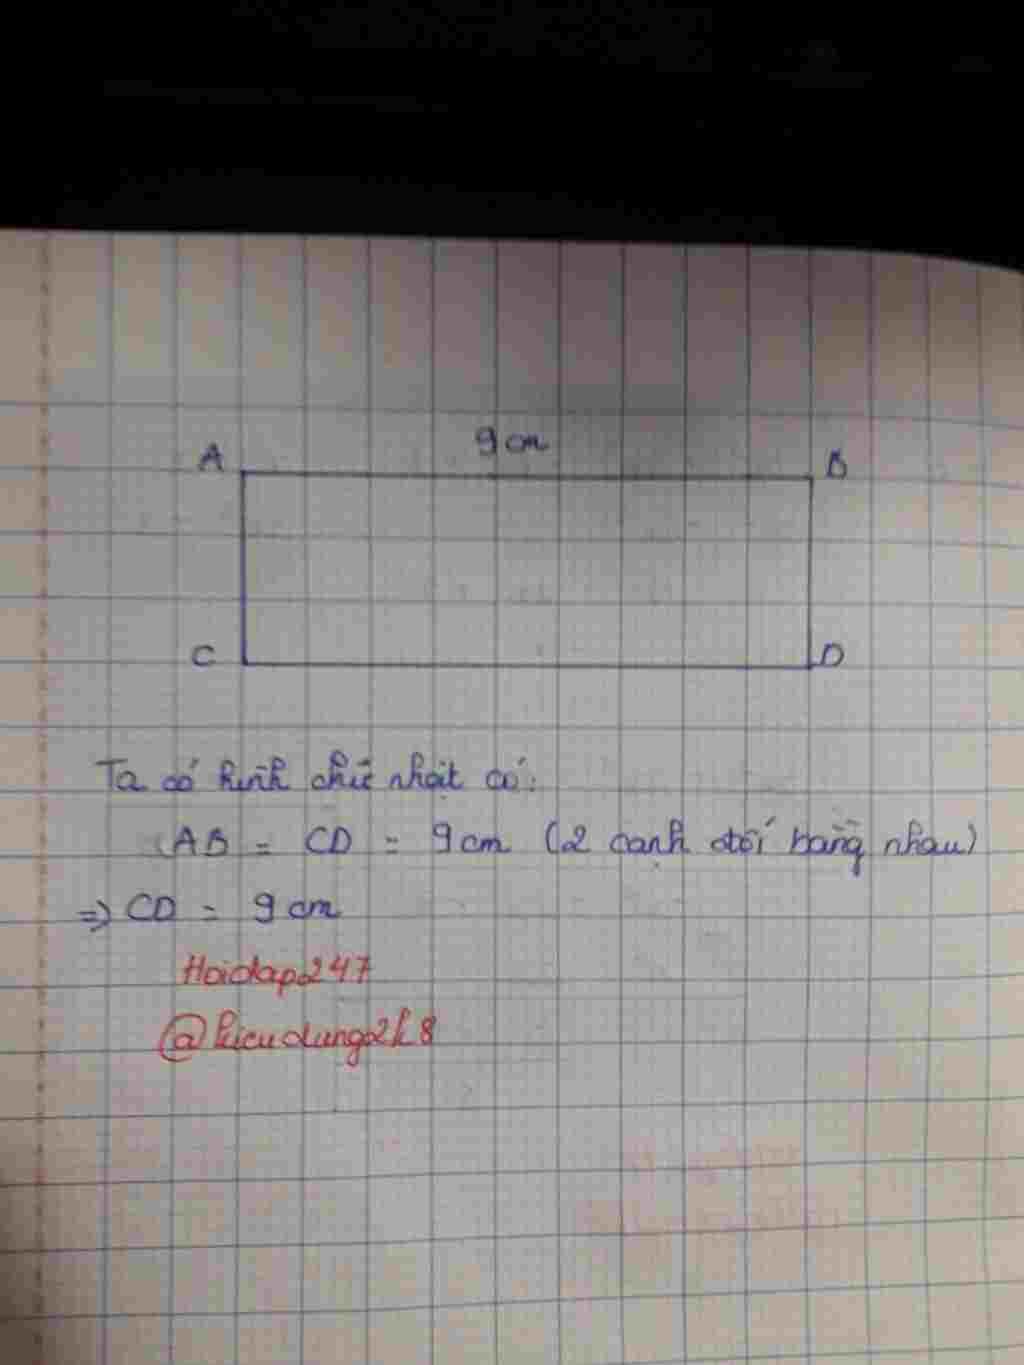 9 cm
A B
C D
Ta có hình chữ nhật có:
AB = CD = 9 cm (2 cạnh đối bằng nhau)
=> CD = 9 cm
Hoidap247
@kieudung2k8